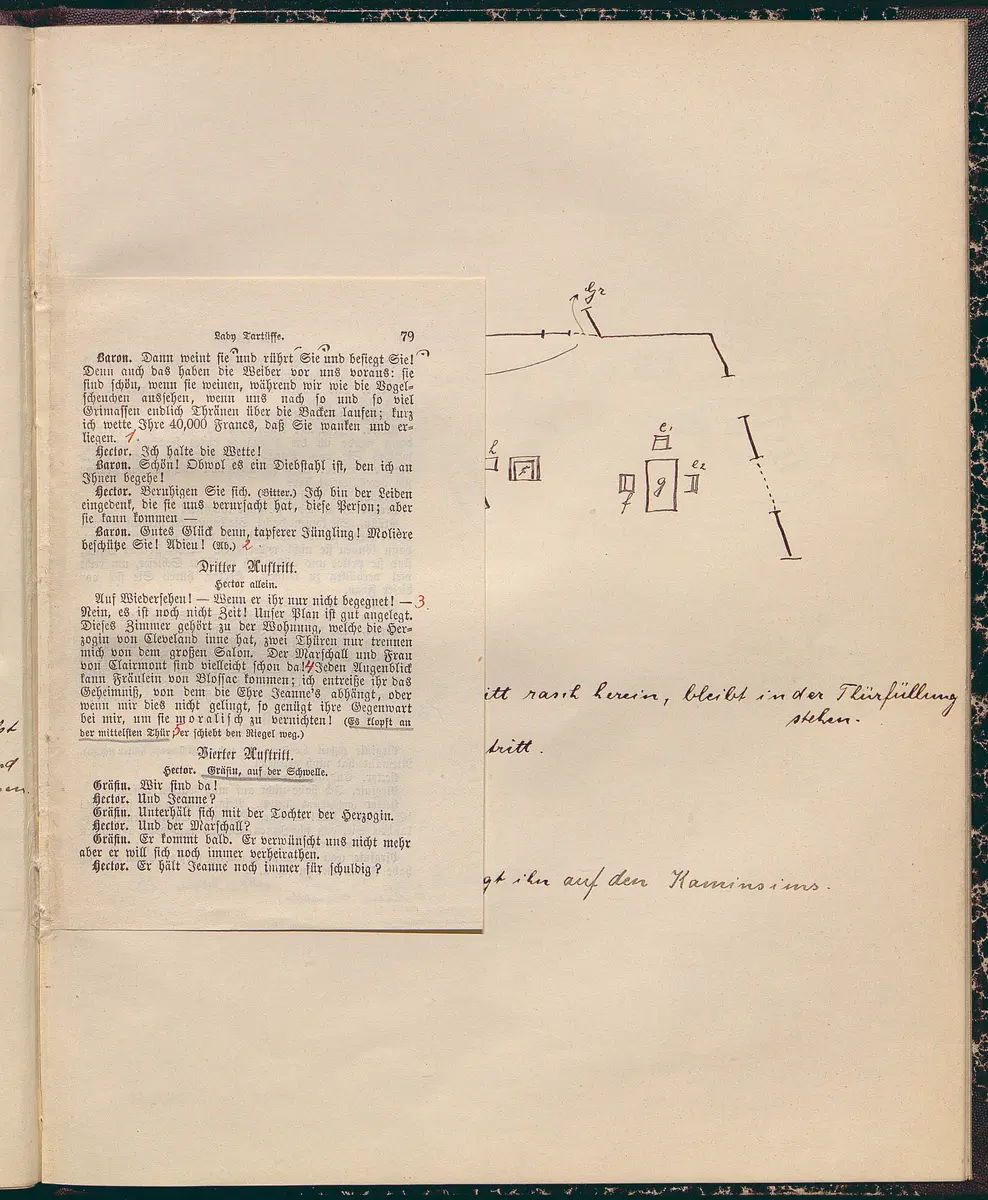 Lady Tartüffe. 79
Baron. Dann weint sie und rührt Sie und besiegt Sie!
Denn auch das haben die Weiber vor uns voraus: sie
sind schön, wenn sie weinen, während wir wie die Vogel-
scheuchen aussehen, wenn uns nach so und so viel
Grimassen endlich Thränen über die Backen laufen; kurz
ich wette Ihre 40,000 Francs, daß Sie wanken und er-
liegen. 1.
Hector. Ich halte die Wette!
Baron. Schön! Obwol es ein Diebstahl ist, den ich an
Ihnen begehe!
Hector. Beruhigen Sie sich. (Bitter.) Ich bin der Leiden
eingedenk, die sie uns verursacht hat, diese Person; aber
sie kann kommen —
Baron. Gutes Glück denn, tapferer Jüngling! Molière
beschütze Sie! Adieu! (Ab.) 2
Dritter Auftritt.
Hector allein.
Auf Wiedersehen! — Wenn er ihr nur nicht begegnet! — 3.
Nein, es ist noch nicht Zeit! Unser Plan ist gut angelegt.
Dieses Zimmer gehört zu der Wohnung, welche die Her-
zogin von Cleveland inne hat, zwei Thüren nur trennen
mich von dem großen Salon. Der Marschall und Frau
von Clairmont sind vielleicht schon da! 4 Jeden Augenblick
kann Fräulein von Blossac kommen; ich entreiße ihr das
Geheimniß, von dem die Ehre Jeanne's abhängt, oder
wenn mir dies nicht gelingt, so genügt ihre Gegenwart
bei mir, um sie moralisch zu vernichten! (Es klopft an
der mittelsten Thür 5 er schiebt den Riegel weg.)
Vierter Auftritt.
Hector. Gräfin, auf der Schwelle.
Gräfin. Wir sind da!
Hector. Und Jeanne?
Gräfin. Unterhält sich mit der Tochter der Herzogin.
Hector. Und der Marschall?
Gräfin. Er kommt bald. Er verwünscht uns nicht mehr
aber er will sich noch immer verheirathen.
Hector. Er hält Jeanne noch immer für schuldig?
Gr
e1
h
e2
g
f
itt rasch herein, bleibt in der Thürfüllung
stehen.
tritt.
gt ihn auf den Kaminsims.